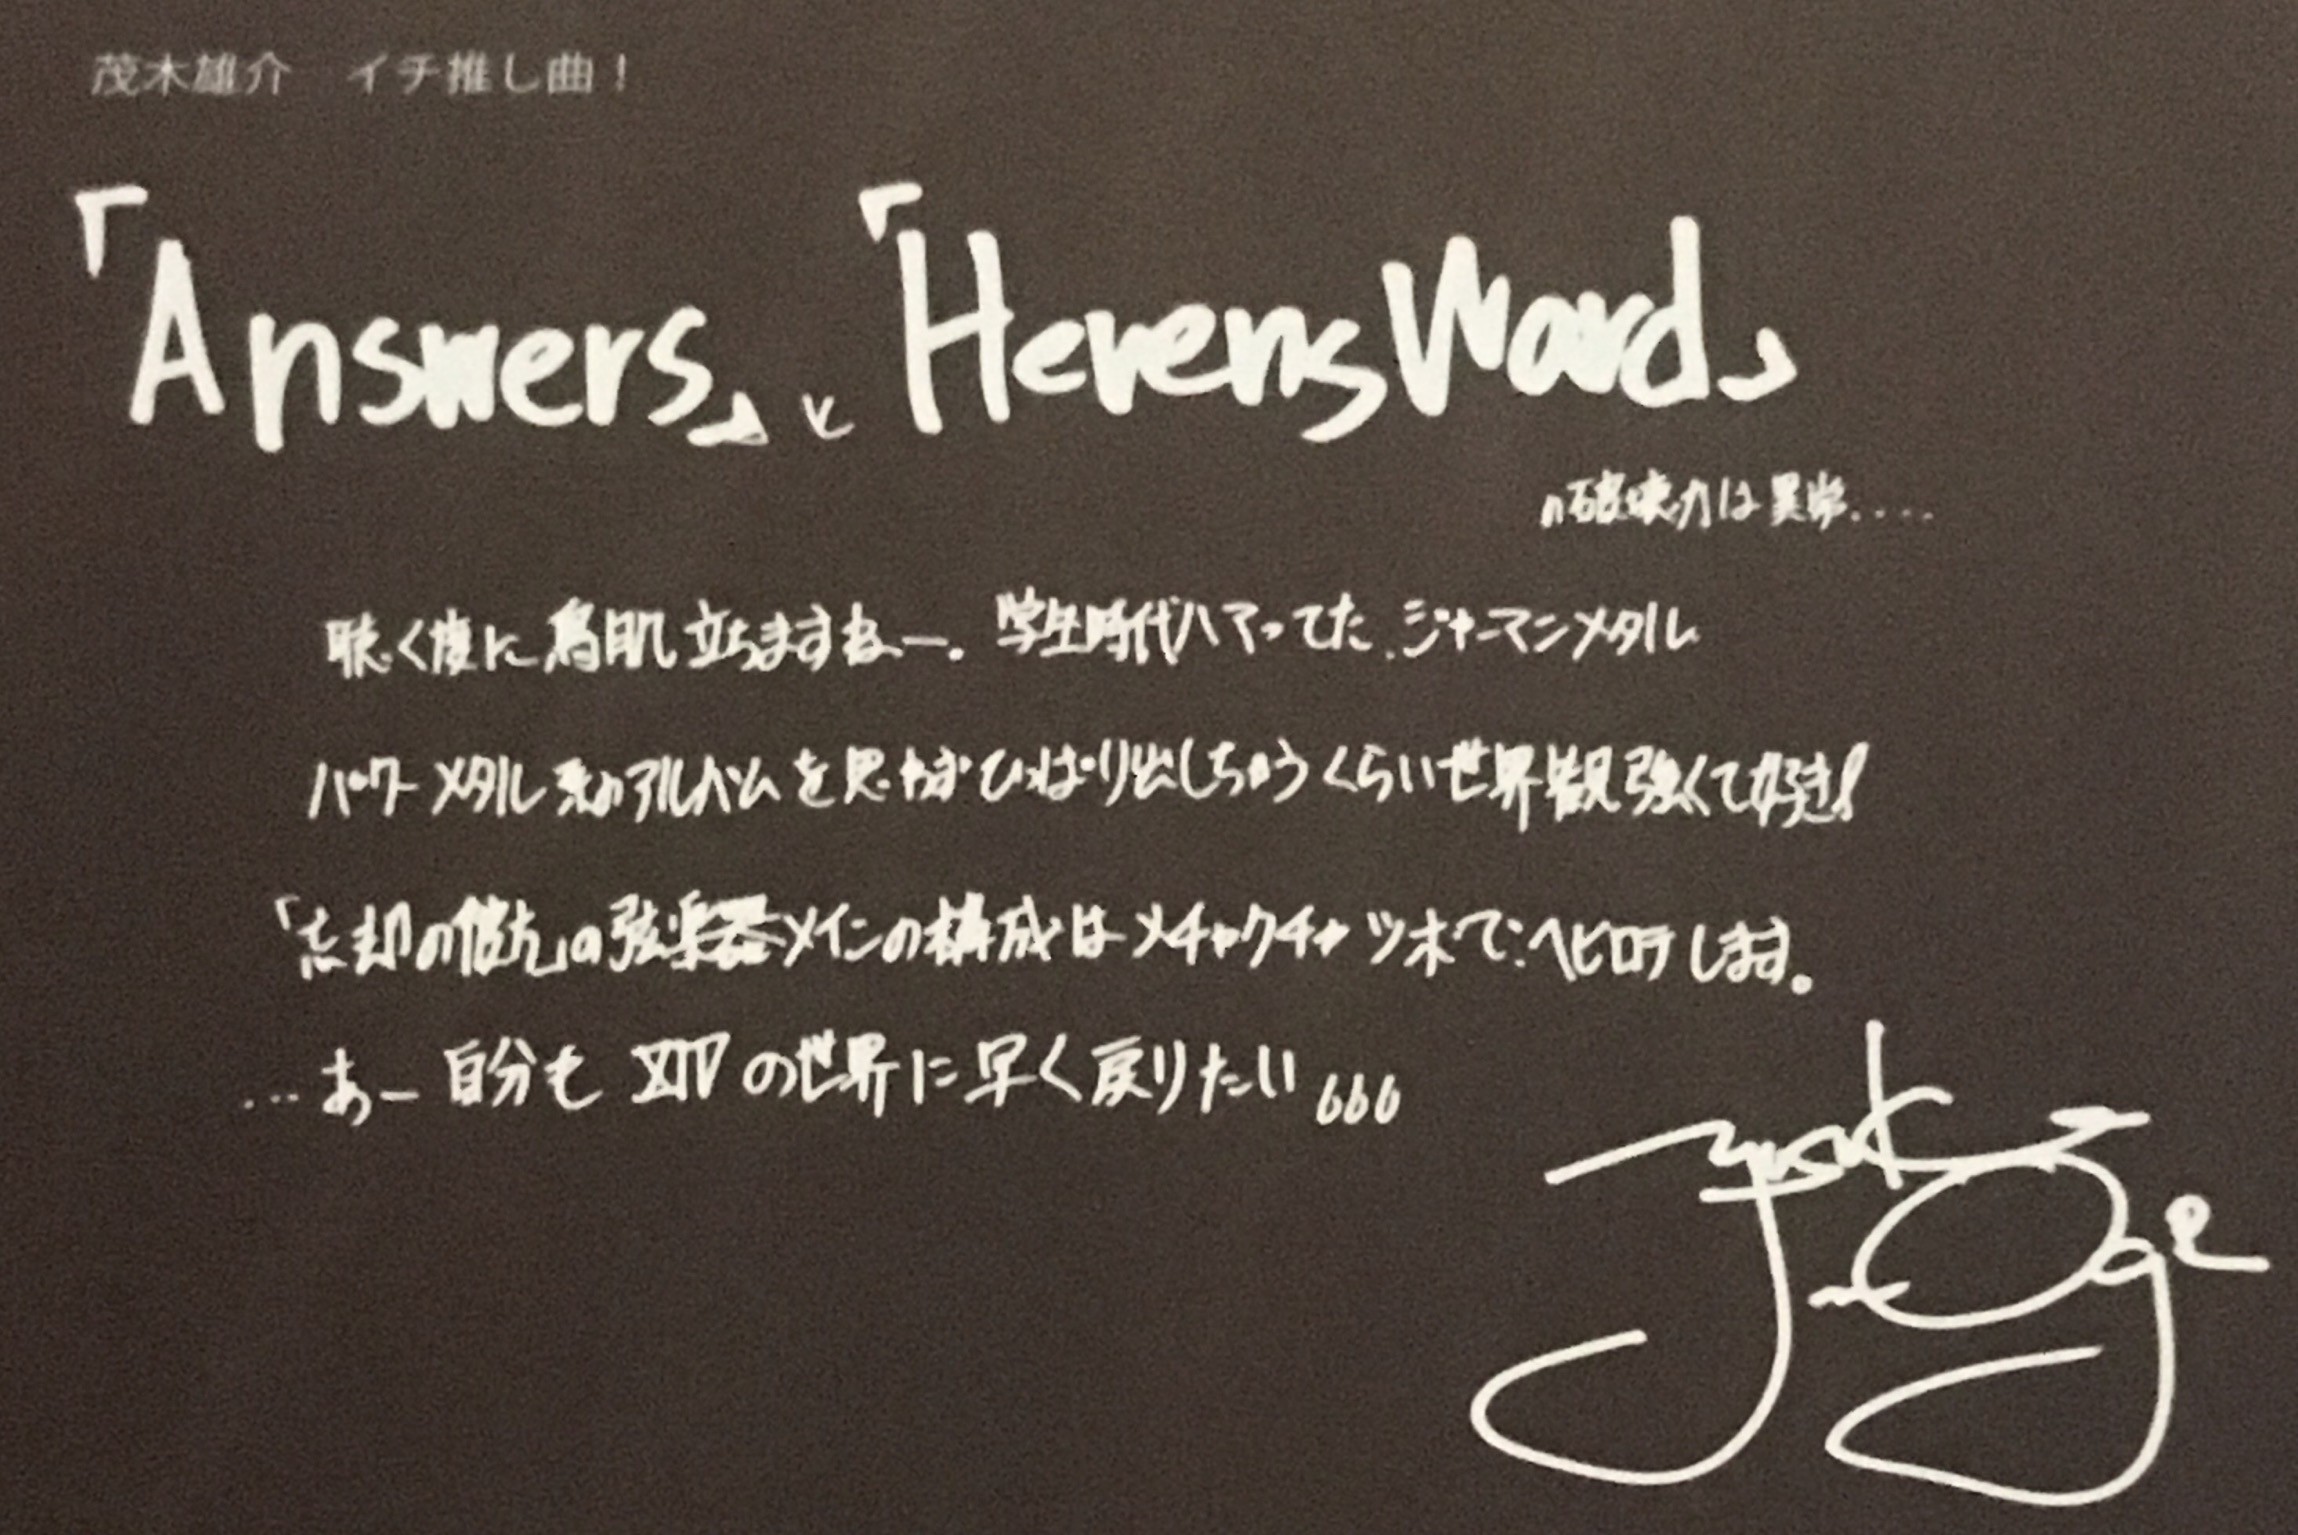 茂木雄介　イチ推し曲！
「Answers」と「HevensWard」
の破壊力は異常....
聴く度に鳥肌立ちますねー。学生時代ハマってた、ジャーマンメタル
パワーメタル系のアルバムを思わずひっぱり出しちゃうくらい世界観強くて好き!
「忘却の彼方」の弦楽器メインの構成はメチャクチャツボで:ヘビロテします。
...あー自分もXIVの世界に早く戻りたい666